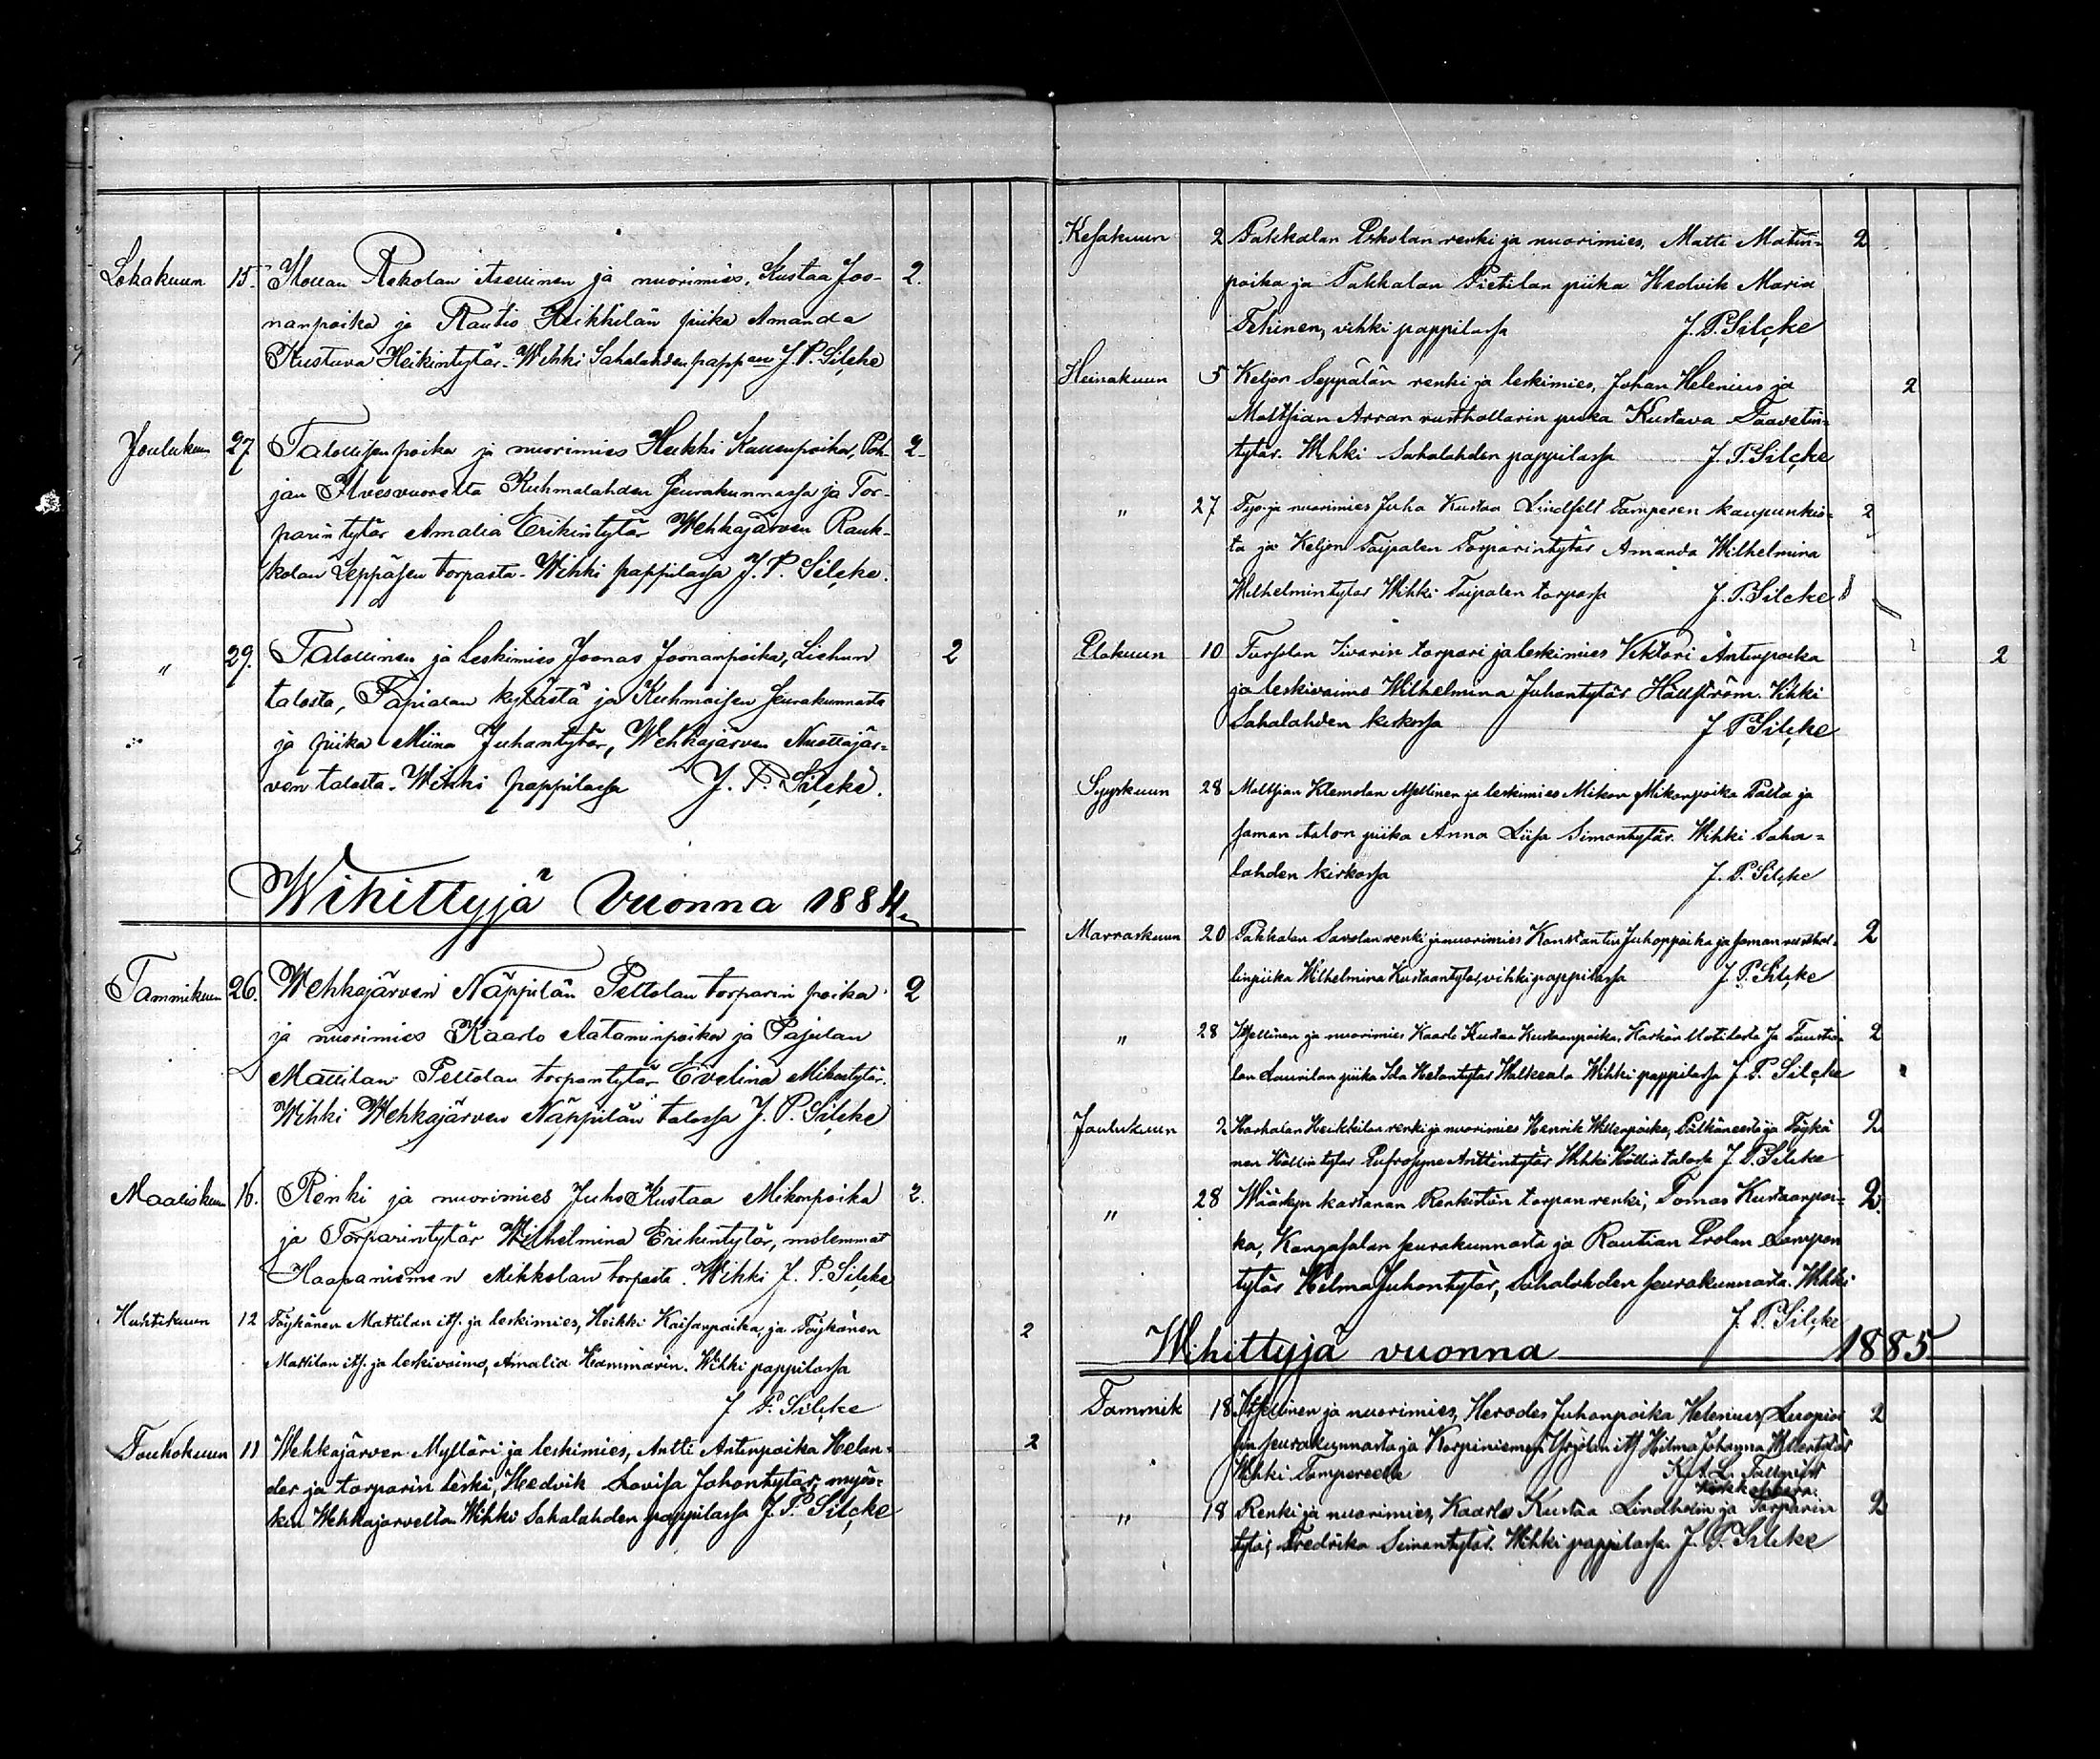 Lokakuun 15. Ilollan Rekolan itsellinen ja nuorimies, Kustaa Joo- 2.
nanpoika ja Rautio Heikkilän piika Amanda
Kustava Heikintytär. Wihki Sahalahden papp J. P. Silcke
Joulukuun 27 Talollisenpoika ja nuorimies Heikki Kallenpoika, Poh- 2-
jan Ilvesvuorelta Kuhmalahden seurakunnassa ja Tor-
parin tytär Amalia Erikintytär Wehkajärven Rauk-
kolan Leppäsen torpasta. Wihki pappilassa J. P. Silcke.
" 29. Talollinen ja leskimies Joonas Joonanpoika, Liehun 2
talosta, Tapialan kylästä ja Kuhmoisen seurakunnasta
ja piika Miina Juhantytär, Wehkajärven Nuottajär=
ven talosta. Wihki pappilassa J. P. Silcke.
Wihittyjä Vuonna 1884.
Tammikuun 26. Wehkajärven Näppilän Peltolan torparin poika 2
ja nuorimies Kaarlo Aataminpoika ja Pajulan
Mattilan Peltolan torparintytär Evelina Mikontytär.
Wihki Wehkajärven Näppilän talossa J. P. Silcke
Maaliskuun 16. Renki ja nuorimies Juho Kustaa Mikonpoika 2.
ja Torparintytär Wilhelmina Erikintytär, molemmat
Haapaniemen Mikkolan torpasta. Wihki J. P. Silcke
Huhtikuun 12 Töykänen Mattilan its. ja leskimies, Heikki Kaisanpoika, ja Töykänen 2
Mattilan its. ja leskivaimo, Amalia Hammarin. Wihki pappilassa
J. P. Silcke
Toukokuun 11 Wehkajärven Mylläri ja leskimies, Antti Antinpoika Helan= 2
der ja torparin leski, Hedvik Lovisa Johantytär, myös=
kin Wehkajarvelta. Wihki Sahalahden pappilassa J. P. Silcke
Kesakuun 2 Pakkalan Eskolan renki ja nuorimies, Matti Matin= 2
poika ja Pakkalan Pietilan piika Hedvik Maria
Tehinen, vihki pappilassa J. P. Silcke
Heinakuun 5 Keljon Seppälän renki ja leskimies, Johan Helenius ja 2
Moltsian Arran rusthollarin piika Kustava Taavetin=
tytär. Wihki Sahalahden pappilassa J. P. Silcke
" 27 Työ- ja nuorimies Juha Kustaa Lindfelt Tamperen kaupunkis= 2
ta ja Keljon Taipalen Torparintytär Amanda Wilhelmina
Wilhelmintytar Wihki Taipalen torpassa J. P. Silcke
Elokuun 10 Tursolan Iivarin torpari ja leskimies Viktori Antinpoika 2
ja leskivaimo Wilhelmina Juhantytär Hällström. Vihki
Sahalahden kirkossa J P Silcke
Syyskuun 28 Moltsian Klemolan itsellinen ja leskimies Mikon Mikonpoika Palta ja
saman talon piika Anna Liisa Simontytär. Wihki Saha=
lahden kirkossa J. P. Silcke
Marraskuun 20 Pakkalan Savolan renki ja nuorimies Konstantin Juhonpoika ja saman rusthol- 2
linpiika Wilhelmina Kustaantytär, vihki pappilassa J. P. Silcke
" 28 Itsellinen ja nuorimies Kaarle Kustaa Kustaanpoika, 2
lan Laurilan piika Ida Wihki pappilassa J. P. Silcke
Joulukuun 2 Heikkilan renki ja nuorimies Henrik Willenpoika, Pälkäneeltä ja Töykä 2
nen Höllin tytar Eufrosyne Anttintytär Wihki Höllin talossa J. P. Silcke
" 28 Wääskyn kartanan torpan renki, Tomas Kustaanpoi= 2
ka, Kangasalan seurakunnasta ja Rautian Erolan Lampon
tytär Helma Juhontytär, Sahalahden seurakunnasta. Wihki
J. P. Silcke
Wihittyjä vuonna 1885
Tammik 18 Itsellinen ja nuorimies, Herodes Juhanpoika Helenius, Luopioi 2
sen seurakunnasta ja Korpiniemen Yrjölän its Hilma Johanna Willentytär
Wihki Tampereella K. A. L. Tallqvist
Kirkkoherra
" 18 Renki ja nuorimies, Kaarlo Kustaa Lindholm ja Torparin 2
tytär, Fredrika Simontytär. Wihki pappilassa J. P. Silcke